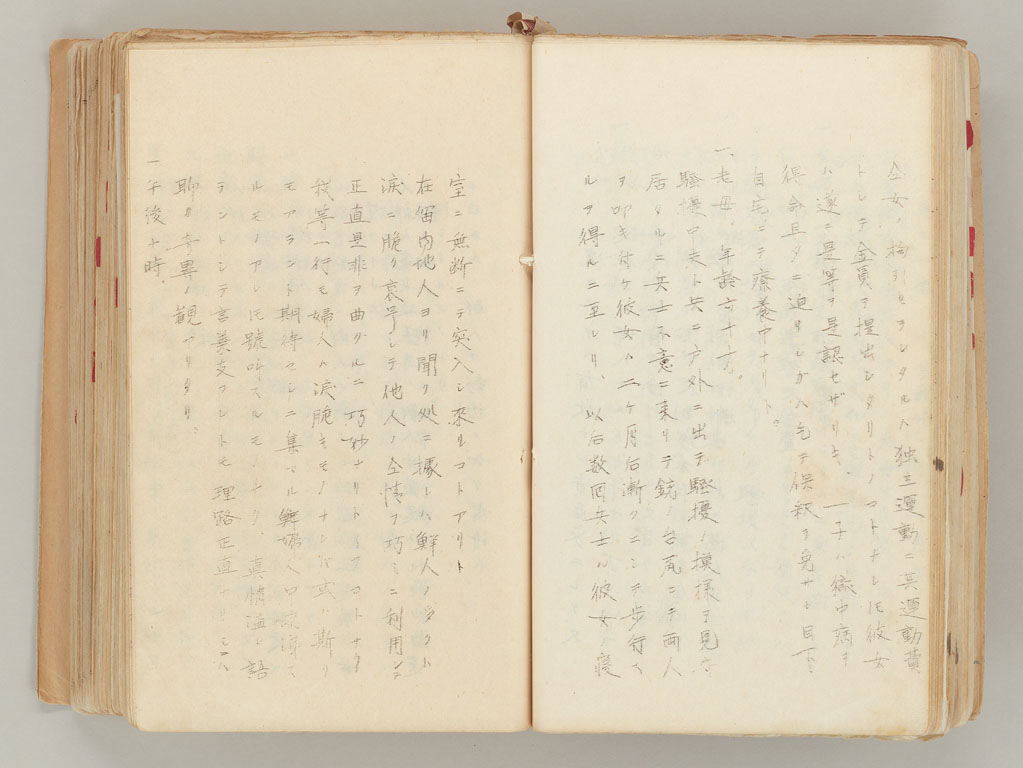 仝女ノ拘引セラレタルハ独立運動ニ其運動費
トシテ金員ヲ提出シタリトノコトナレ𪜈彼女
ハ遂ニ是等ヲ是認セザリキ、一子ハ獄中病ヲ
得命旦夕ニ迫リシガハ乞テ保釈ヲ免サレ目下
自宅ニテ療養中ナリト。
一、老母、年齢六十才。
騒擾中夫ト共ニ戸外ニ出テ騒擾ノ摸様ヲ見
居リルニ兵士不意ニ来リテ銃ノ台尻ニテ両人
ヲ叩キ付ケ彼女ハ二ケ月后漸クニシテ歩行ス
ルヲ得ルニ至レリ、以后数回兵士ハ彼女ノ寝
室ニ無断ニテ突入シ来ルコトアリト
在留内地人ヨリ聞ク処ニ據レハ鮮人ノ多クハ
涙ニ脆ク哀号シテ他人ノ仝情ヲ巧ミニ利用シ
正直是非ヲ曲グルニ巧妙ナリトノコトナ
我等一行モ婦人ハ涙脆キモノナレバ或ハ斯
モアラント期待セシニ集マル鮮婦人口
ルモノアレ𪜈號叫スルモノナク、真情溢レ語
テントシテ言葉支フレトモ理路正直ナリシハ
聊カ奇異ノ観アリタリ、
一午後七時、